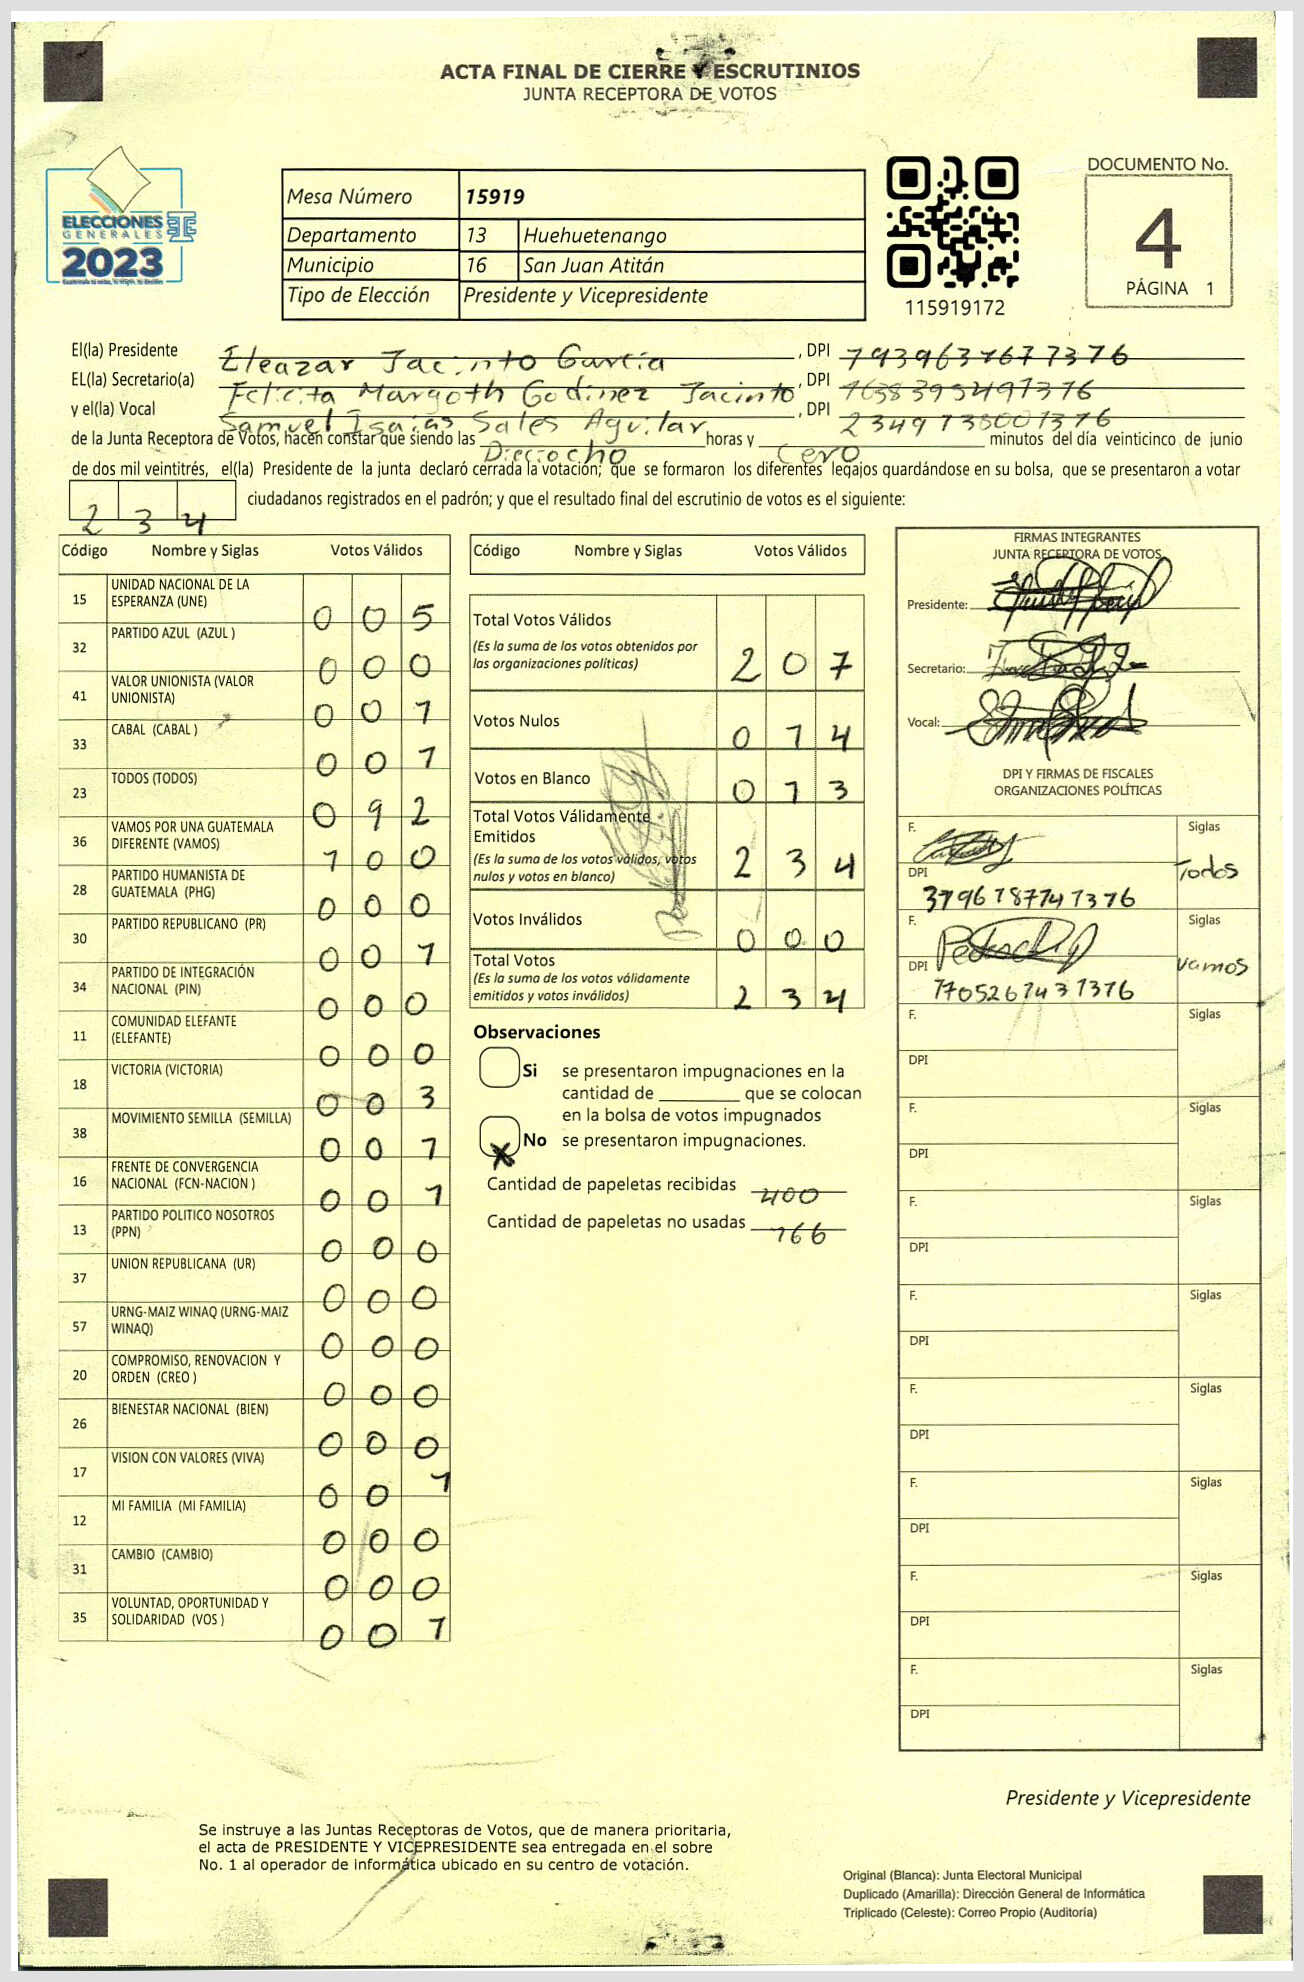 ACTA FINAL DE CIERRE Y ESCRUTINIOS
JUNTA RECEPTORA DE VOTOS
ELECCIONES
GENERALES
2023
Mesa Número 15919
Departamento 13 Huehuetenango
Municipio 16 San Juan Atitán
Tipo de Elección Presidente y Vicepresidente
115919172
DOCUMENTO No.
4
PÁGINA 1
El(la) Presidente Eleazar Jacinto García, DPI 1939637677376
EL(la) Secretario(a) Felicita Margoth Godinez Jacinto, DPI
y el(la) Vocal Samuel Isaias Sales Aguilar, DPI
de la Junta Receptora de Votos, hacen constar que siendo las Dieciocho horas y Cero minutos del día veinticinco de junio
de dos mil veintitrés, el(la) Presidente de la junta declaró cerrada la votación; que se formaron los diferentes legajos guardándose en su bolsa, que se presentaron a votar
234 ciudadanos registrados en el padrón; y que el resultado final del escrutinio de votos es el siguiente:
Código Nombre y Siglas Votos Válidos
15 UNIDAD NACIONAL DE LA ESPERANZA (UNE) 005
32 PARTIDO AZUL (AZUL ) 000
41 VALOR UNIONISTA (VALOR UNIONISTA) 001
33 CABAL (CABAL ) 001
23 TODOS (TODOS) 092
36 VAMOS POR UNA GUATEMALA DIFERENTE (VAMOS) 100
28 PARTIDO HUMANISTA DE GUATEMALA (PHG) 000
30 PARTIDO REPUBLICANO (PR) 001
34 PARTIDO DE INTEGRACIÓN NACIONAL (PIN) 000
11 COMUNIDAD ELEFANTE (ELEFANTE) 000
18 VICTORIA (VICTORIA) 003
38 MOVIMIENTO SEMILLA (SEMILLA) 001
16 FRENTE DE CONVERGENCIA NACIONAL (FCN-NACION ) 001
13 PARTIDO POLITICO NOSOTROS (PPN) 000
37 UNION REPUBLICANA (UR) 000
57 URNG-MAIZ WINAQ (URNG-MAIZ WINAQ) 000
20 COMPROMISO, RENOVACION Y ORDEN (CREO ) 000
26 BIENESTAR NACIONAL (BIEN) 000
17 VISION CON VALORES (VIVA) 001
12 MI FAMILIA (MI FAMILIA) 000
31 CAMBIO (CAMBIO) 000
35 VOLUNTAD, OPORTUNIDAD Y SOLIDARIDAD (VOS ) 001
Código Nombre y Siglas Votos Válidos
Total Votos Válidos 207
(Es la suma de los votos obtenidos por
las organizaciones políticas)
Votos Nulos 014
Votos en Blanco 013
Total Votos Válidamente Emitidos 234
(Es la suma de los votos válidos, votos
nulos y votos en blanco)
Votos Inválidos 000
Total Votos 234
(Es la suma de los votos válidamente
emitidos y votos inválidos)
Observaciones
Si se presentaron impugnaciones en la
cantidad de ________ que se colocan
en la bolsa de votos impugnados
X No se presentaron impugnaciones.
Cantidad de papeletas recibidas 400
Cantidad de papeletas no usadas 166
FIRMAS INTEGRANTES
JUNTA RECEPTORA DE VOTOS
Presidente:
Secretario:
Vocal:
DPI Y FIRMAS DE FISCALES
ORGANIZACIONES POLÍTICAS
F. Siglas Todos
DPI 3796187741376
F. Siglas Vamos
DPI 1705261431376
F. Siglas
DPI
F. Siglas
DPI
F. Siglas
DPI
F. Siglas
DPI
F. Siglas
DPI
F. Siglas
DPI
F. Siglas
DPI
F. Siglas
DPI
Presidente y Vicepresidente
Se instruye a las Juntas Receptoras de Votos, que de manera prioritaria,
el acta de PRESIDENTE Y VICEPRESIDENTE sea entregada en el sobre
No. 1 al operador de informática ubicado en su centro de votación.
Original (Blanca): Junta Electoral Municipal
Duplicado (Amarilla): Dirección General de Informática
Triplicado (Celeste): Correo Propio (Auditoría)